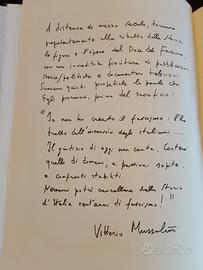 A distanza di mezzo secolo, tornano
prepotentemente alla ribalta della Storia
la figura e l'opera del Duce del Fascismo,
con una fioritura di pubblicazioni
storico/politiche e documentari televisivi.
Suonano quasi profetiche le parole che
Egli pronunciò, prima del sacrificio:
"Io non ho creato il fascismo: l'ho
tratto dall'inconscio degli italiani...
Il giudizio di oggi non conta. Conterà
quello di domani, a passioni sopite, a
confronti stabiliti.
Nessuno potrà cancellare dalla Storia
d'Italia vent'anni di fascismo!"
Vittorio Mussolini
subito